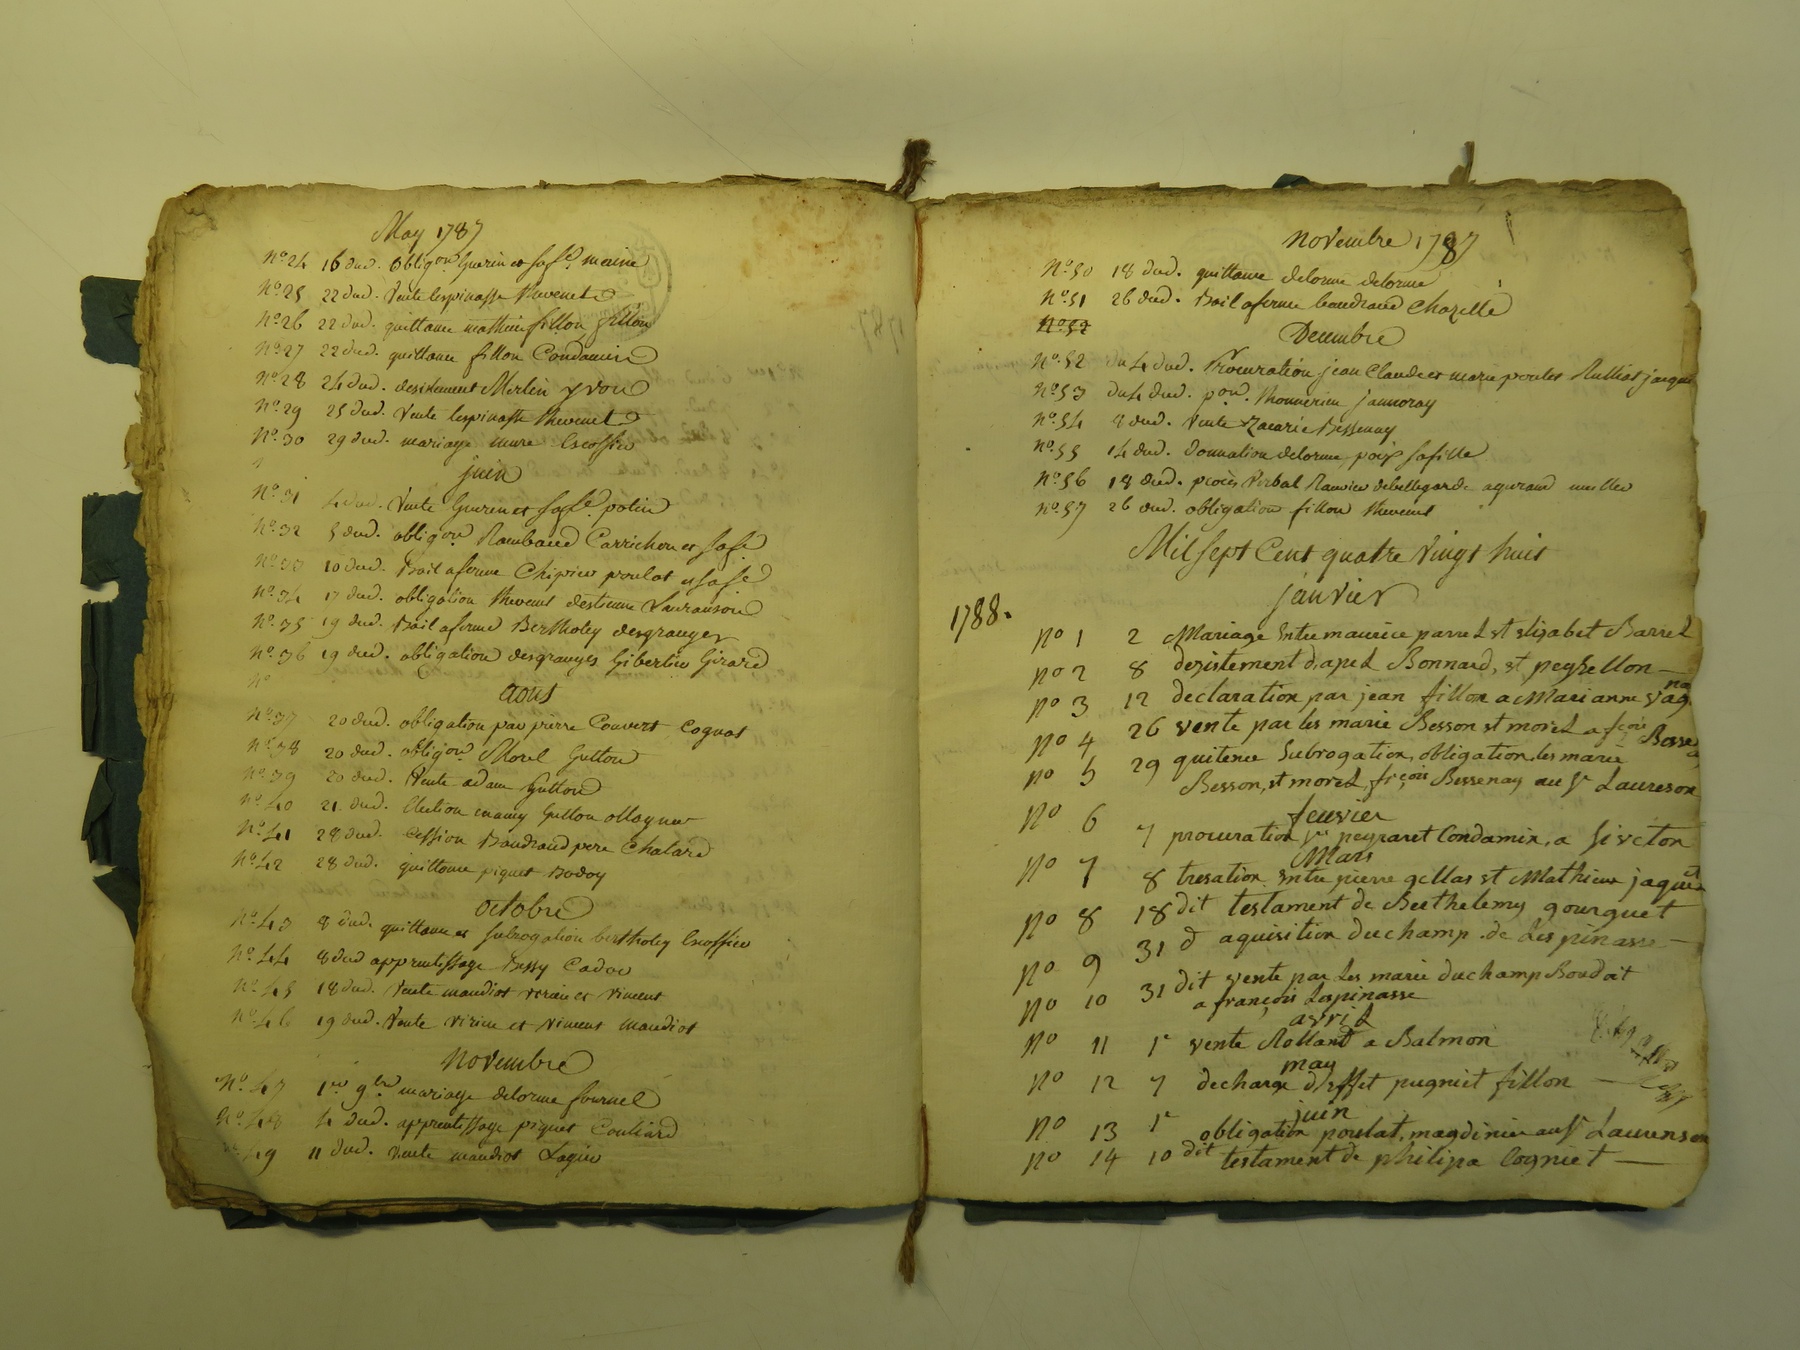 May 1787
No 24 16 dud. Obligon Guerin et sa fe. merine
No 25 22 dud. Vente lespinasse thevenet
No 26 22 dud. quittance mathieu fillon fillon
No 27 22 dud. quittance fillon Condamin
No 28 24 dud. desistement Merlin yvon
No 29 25 dud. Vente lespinasse thevenet
No 30 29 dud. mariage mure Escoffier
juin
No 31 4 dud. Vente Guerin et sa fe potin
No 32 5 dud. obligon Rambaud Carrichon et sa fe
No 33 10 dud. Bail a ferme Chipier poulat et sa fe
No 34 17 dud. obligation thevenet destienne Lauranson
No 35 19 dud. Bail a ferme Bertholey desgranges
No 36 19 dud. obligation desgranges Gibertin Girard
No
aoust
No 37 20 dud. obligation par pierre Couvert Cognat
No 38 20 dud. obligon Morel Gutton
No 39 20 dud. Vente adam Gutton
No 40 21 dud. Election Gutton
No 41 28 dud. Cession Baudrand pere Chatard
No 42 28 dud. quittance piquet Bodoy
octobre
No 43 8 dud. quittance et subrogation bertholey Escoffier
No 44 8 dud apprentissage Bessy Cadou
No 45 18 dud. Vente maudiot virieu et vincent
No 46 19 dud. Vente virieu et vincent maudiot
Novembre
No 47 1er 9bre mariage delorme fournel
No 48 4 dud. apprentissage piquet Couliard
No 49 11 dud. Vente maudiot Lagier
Novembre 1787
No 50 18 dud. quittance delorme delorme
No 51 26 dud. Bail a ferme baudrand Chazelle
No 52
Decembre
No 52 du 4 dud. Procuration jean Claude et marie poulet Rulliat jacque
No 53 du 4 dud. pon. thonnerieu jannoray
No 54 8 dud. Vente Zacarie Bessenay
No 55 14 dud. Donnation delorme, poix sa fille
No 56 18 dud. procès Verbal Ranvier debellegarde
No 57 26 dud. obligation fillon thevenet
Mil sept Cent quatre Vingt huit
janvier
1788.
no 1 2 Mariage Entre maurice parret et elizabet Barret
no 2 8 dezistement d'apel Bonnard, et peyzellon
no 3 12 declaration par jean fillon a Marianne vag na
no 4 26 vente par les marie Besson et morel a fçois Besse
no 5 29 quitence Subrogation, obligation, les marie
Besson, et morel, frçois Bessenay au Sr Laureson
feuvier
no 6 7 procuration Sr peyraret Condamin, a Giveton
Mars
no 7 8 tresation Entre pierre gellas et Mathieu jaquet
no 8 18 dit testament de Berthelemy gourguet
no 9 31 d aquisition duchamp de Lespinasse
no 10 31 dit vente par les marie duchamp Boudoit
a françois Lespinasse
avril
no 11 1r vente Rolland a Balmon
may
no 12 7 decharge d'effet pugniet fillon
juin
no 13 1r obligation poulat, magdinier au Sr Laurenson
no 14 10 dit testament de philipa Cogniet